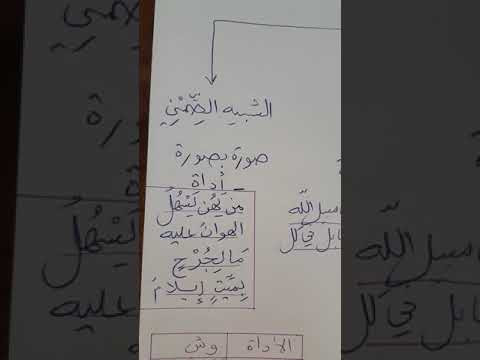 التشبيه الضِّمْنِي
صورة بصورة
- أداة
مِن يَهُن يَسْهُلُ
الهوان عليه
مَا لِجُرْحٍ
بِمَيِّتٍ إيلامُ
الله
في كل
الأداة